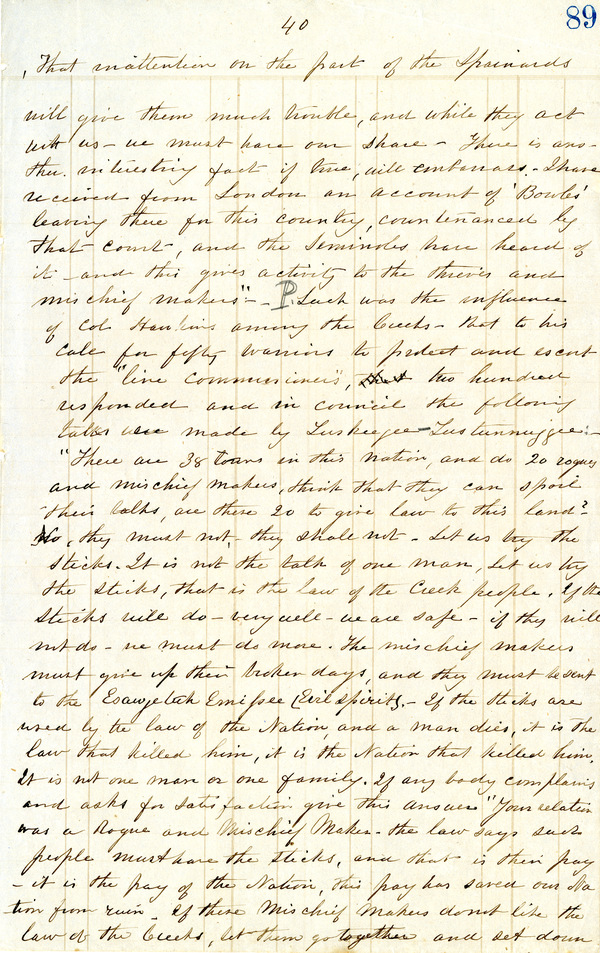 40
89
, That inattention on the part of the Spainards
will give them much trouble, and while they act
with us - we must have our share - There is ano-
ther interesting fact if true, will embarrass. I have
received from London an account of 'Bowles'
leaving there for this country, countenanced by
that court, and the Seminoles have heard of
it - and this gives activity to the thieves and
mischief makers" - P. Such was the influence
of Col Hawkins among the Creeks - that to his
call for fifty warriors to protect and escort
the "line commissioners", two hundred
responded and in council the following
talks were made by Tuskeegee - Tustunnuggee: -
"There are 38 towns in this nation, and do 20 rogues
and mischief makers, think that they can spoil
their talks, are there 20 to give law to this land?
No, they must not, they shall not - Let us try the
sticks. It is not the talk of one man, let us try
the sticks, that is the law of the Creek people. If the
sticks will do - very well - we are safe - if they will
not do - we must do more. The mischief makers
must give up their broken days, and they must be sent
to the Esawgetuh Emissee (Evil Spirit). - If the sticks are
used by the law of the Nation, and a man dies, it is the
law that killed him, it is the Nation that killed him.
It is not one man or one family. If any body complains
and asks for satisfaction give this answer "Your relation
was a Rogue and Mischief Maker - the law says such
people must have the sticks, and that is their pay
- it is the pay of the Nation, this pay has saved our Na
tion from ruin - If these Mischief Makers do not like the
law of the Creeks, let them go together and set down